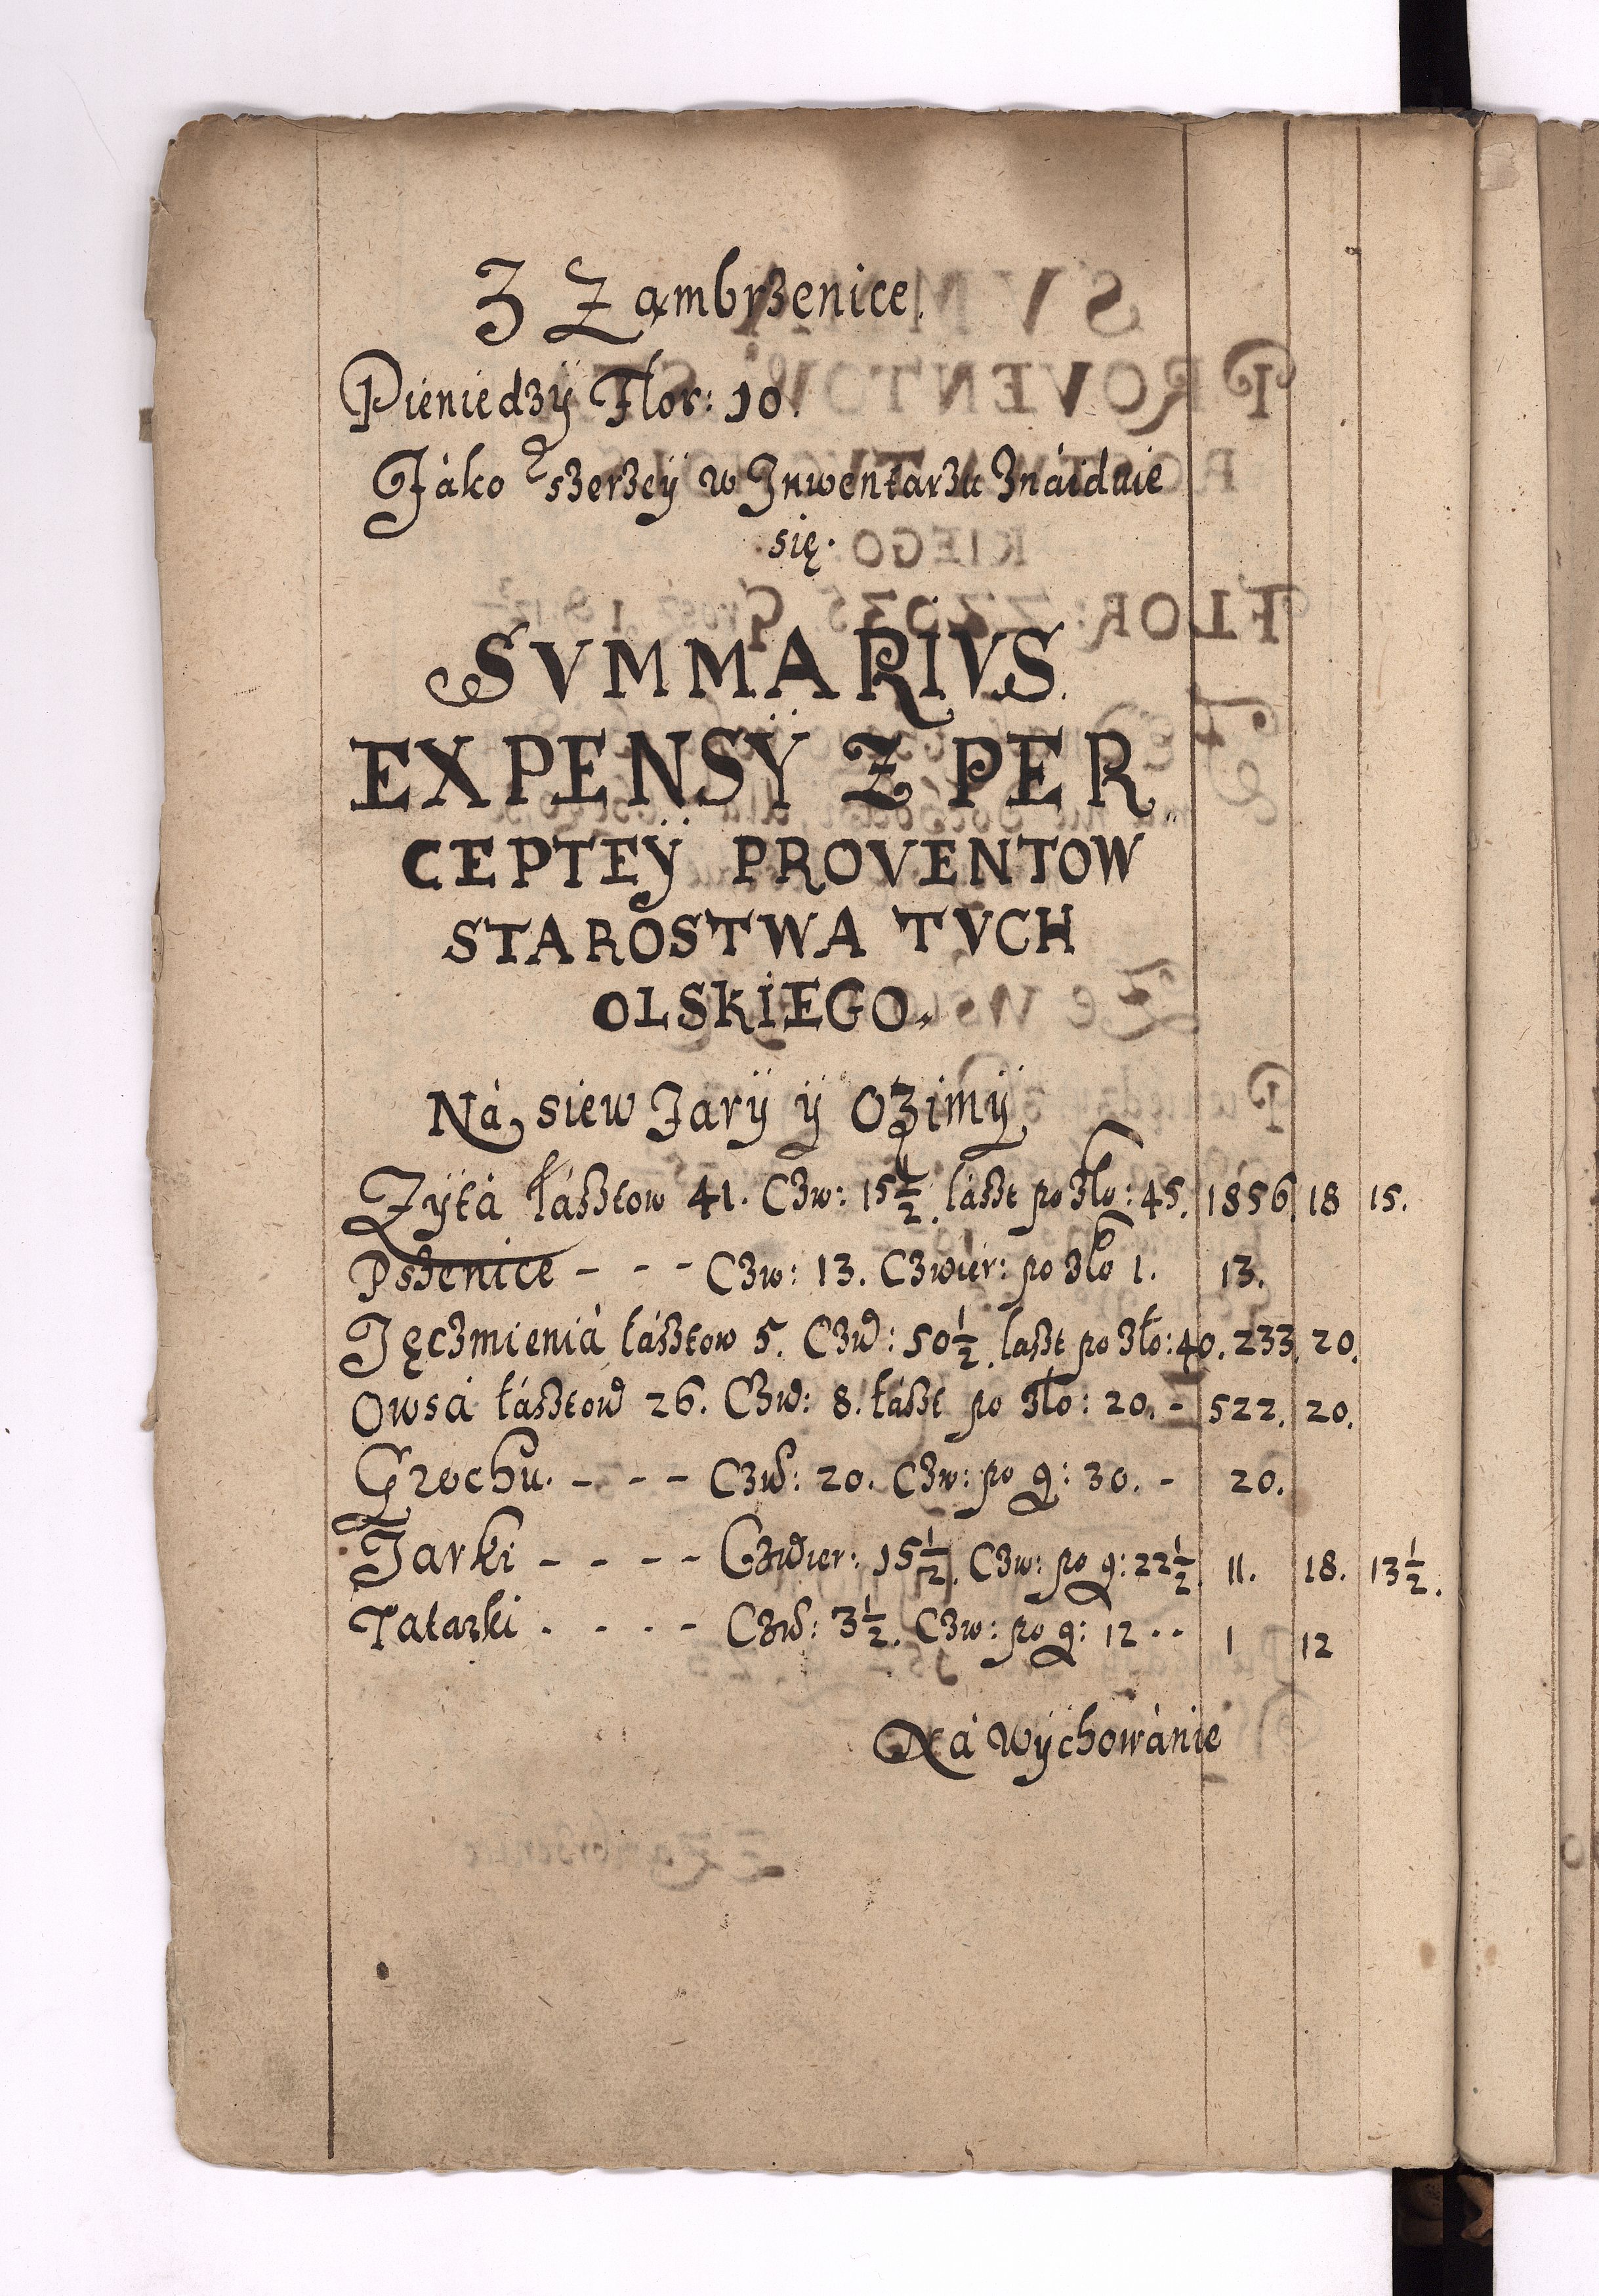 Z Zambrzenice.
Pieniedzÿ Flor: 10.
Jáko szerzeÿ w Inwentarzu Znáiduie
się.
SVMMARIVS
EXPENSŸ Z PER„
CEPTEŸ PROVENTOW
STAROSTWA TVCH
OLSKIEGO.
Ná siew Jarÿ ÿ Ozimÿ
Zÿtá łásztow 41. Czw: 15½. lászt po Zło: 45. 1856. 18 15.
Pszenice - - - Czw: 13. Czwier: po Zło 1. 13.
Jęczmieniá łásztow 5. Czw: 50½. laszt po Zło: 40. 233. 20.
Owsá łásztow 26. Czw: 8. łászt po Zło: 20. - 522. 20.
Grochu. - - - Czw: 20. Czw: po g: 30. - 20.
Jarki - - - - Czwier: 15½. Czw: po g: 22½. 11. 18. 13½.
Tatarki . - - - Czw: 3½. Czw: po g: 12 - - 1 12
Ná Wÿchowánie